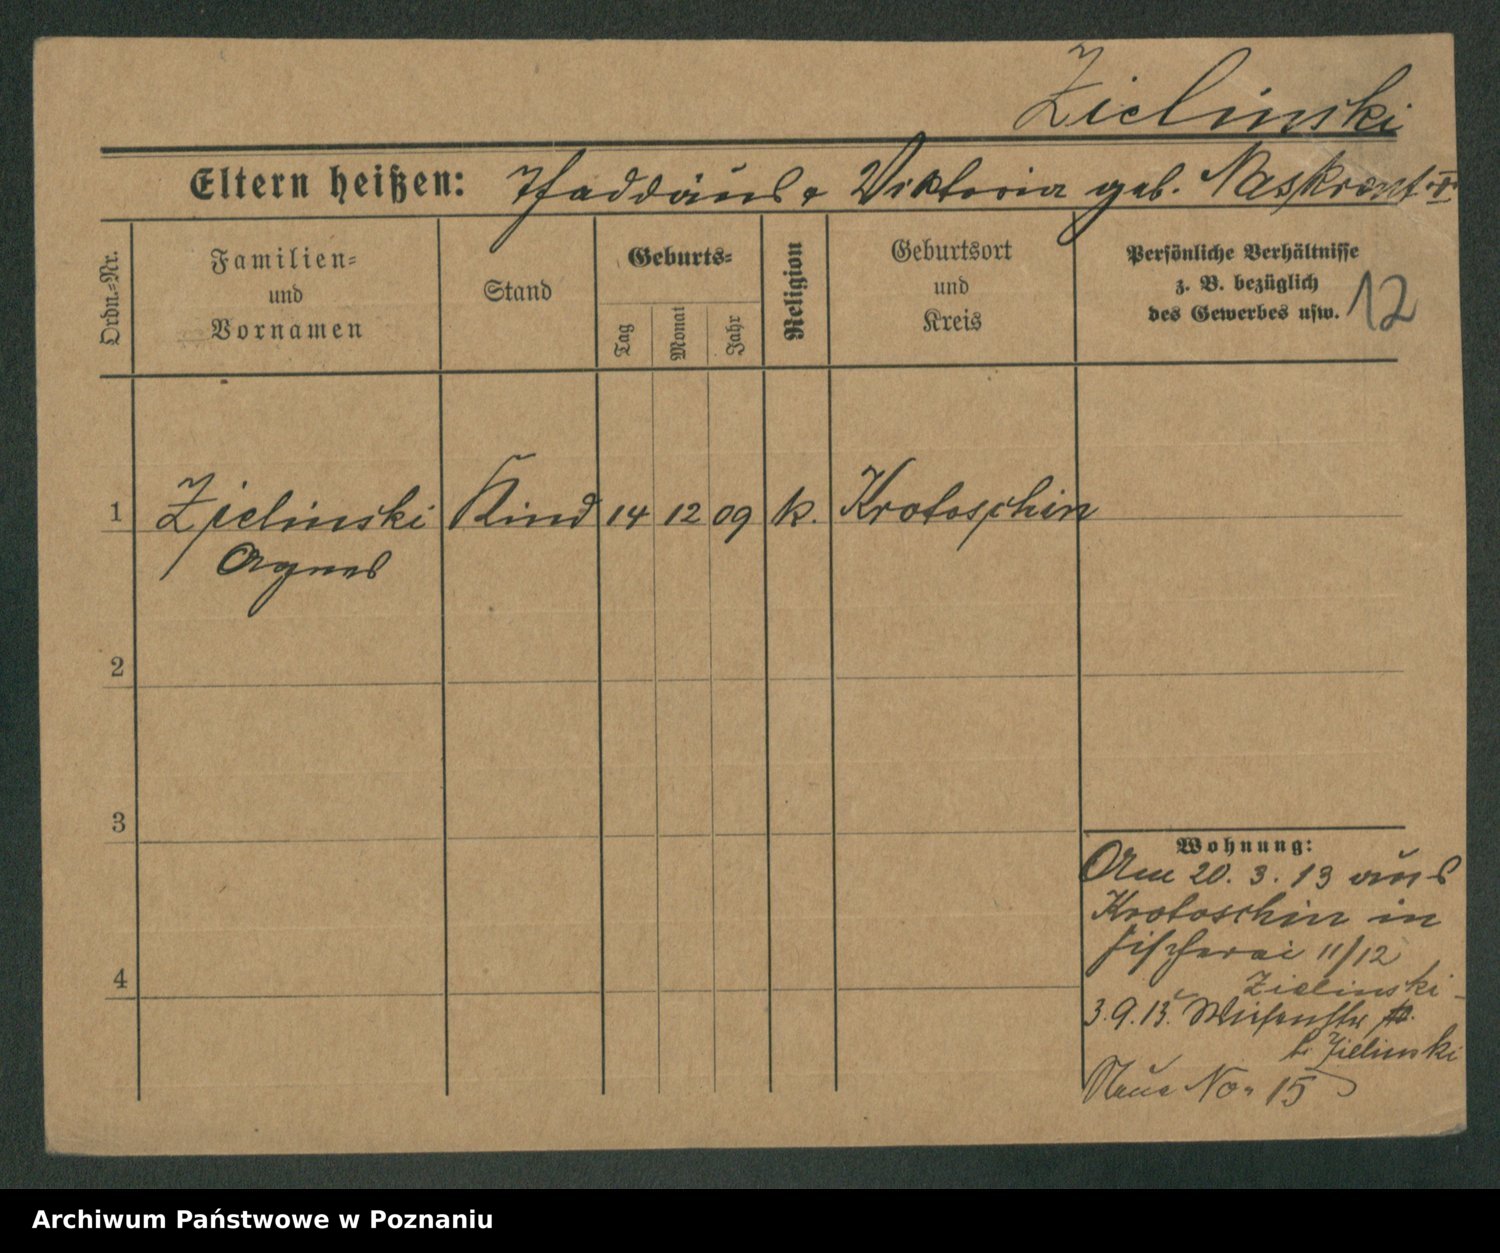 Zielinski
Eltern heißen: Thaddäus & Viktoria geb. Naskrent
Ordn.=Nr.
Familien=
und
Vornamen
Stand
Geburts=
Tag
Monat
Jahr
Religion
Geburtsort
und
Kreis
Persönliche Verhältnisse
z. B. bezüglich
des Gewerbes usw.
12
1 Zielinski Kind 14 12 09 k. Krotoschin
Agnes
2
3
4
Wohnung:
Am 20. 3. 13 aus
Krotoschin in
Fischerei 11/12
Zielinski
3.9.13. Wiesenstr
b. Zielinski
Neue No. 15
Archiwum Państwowe w Poznaniu